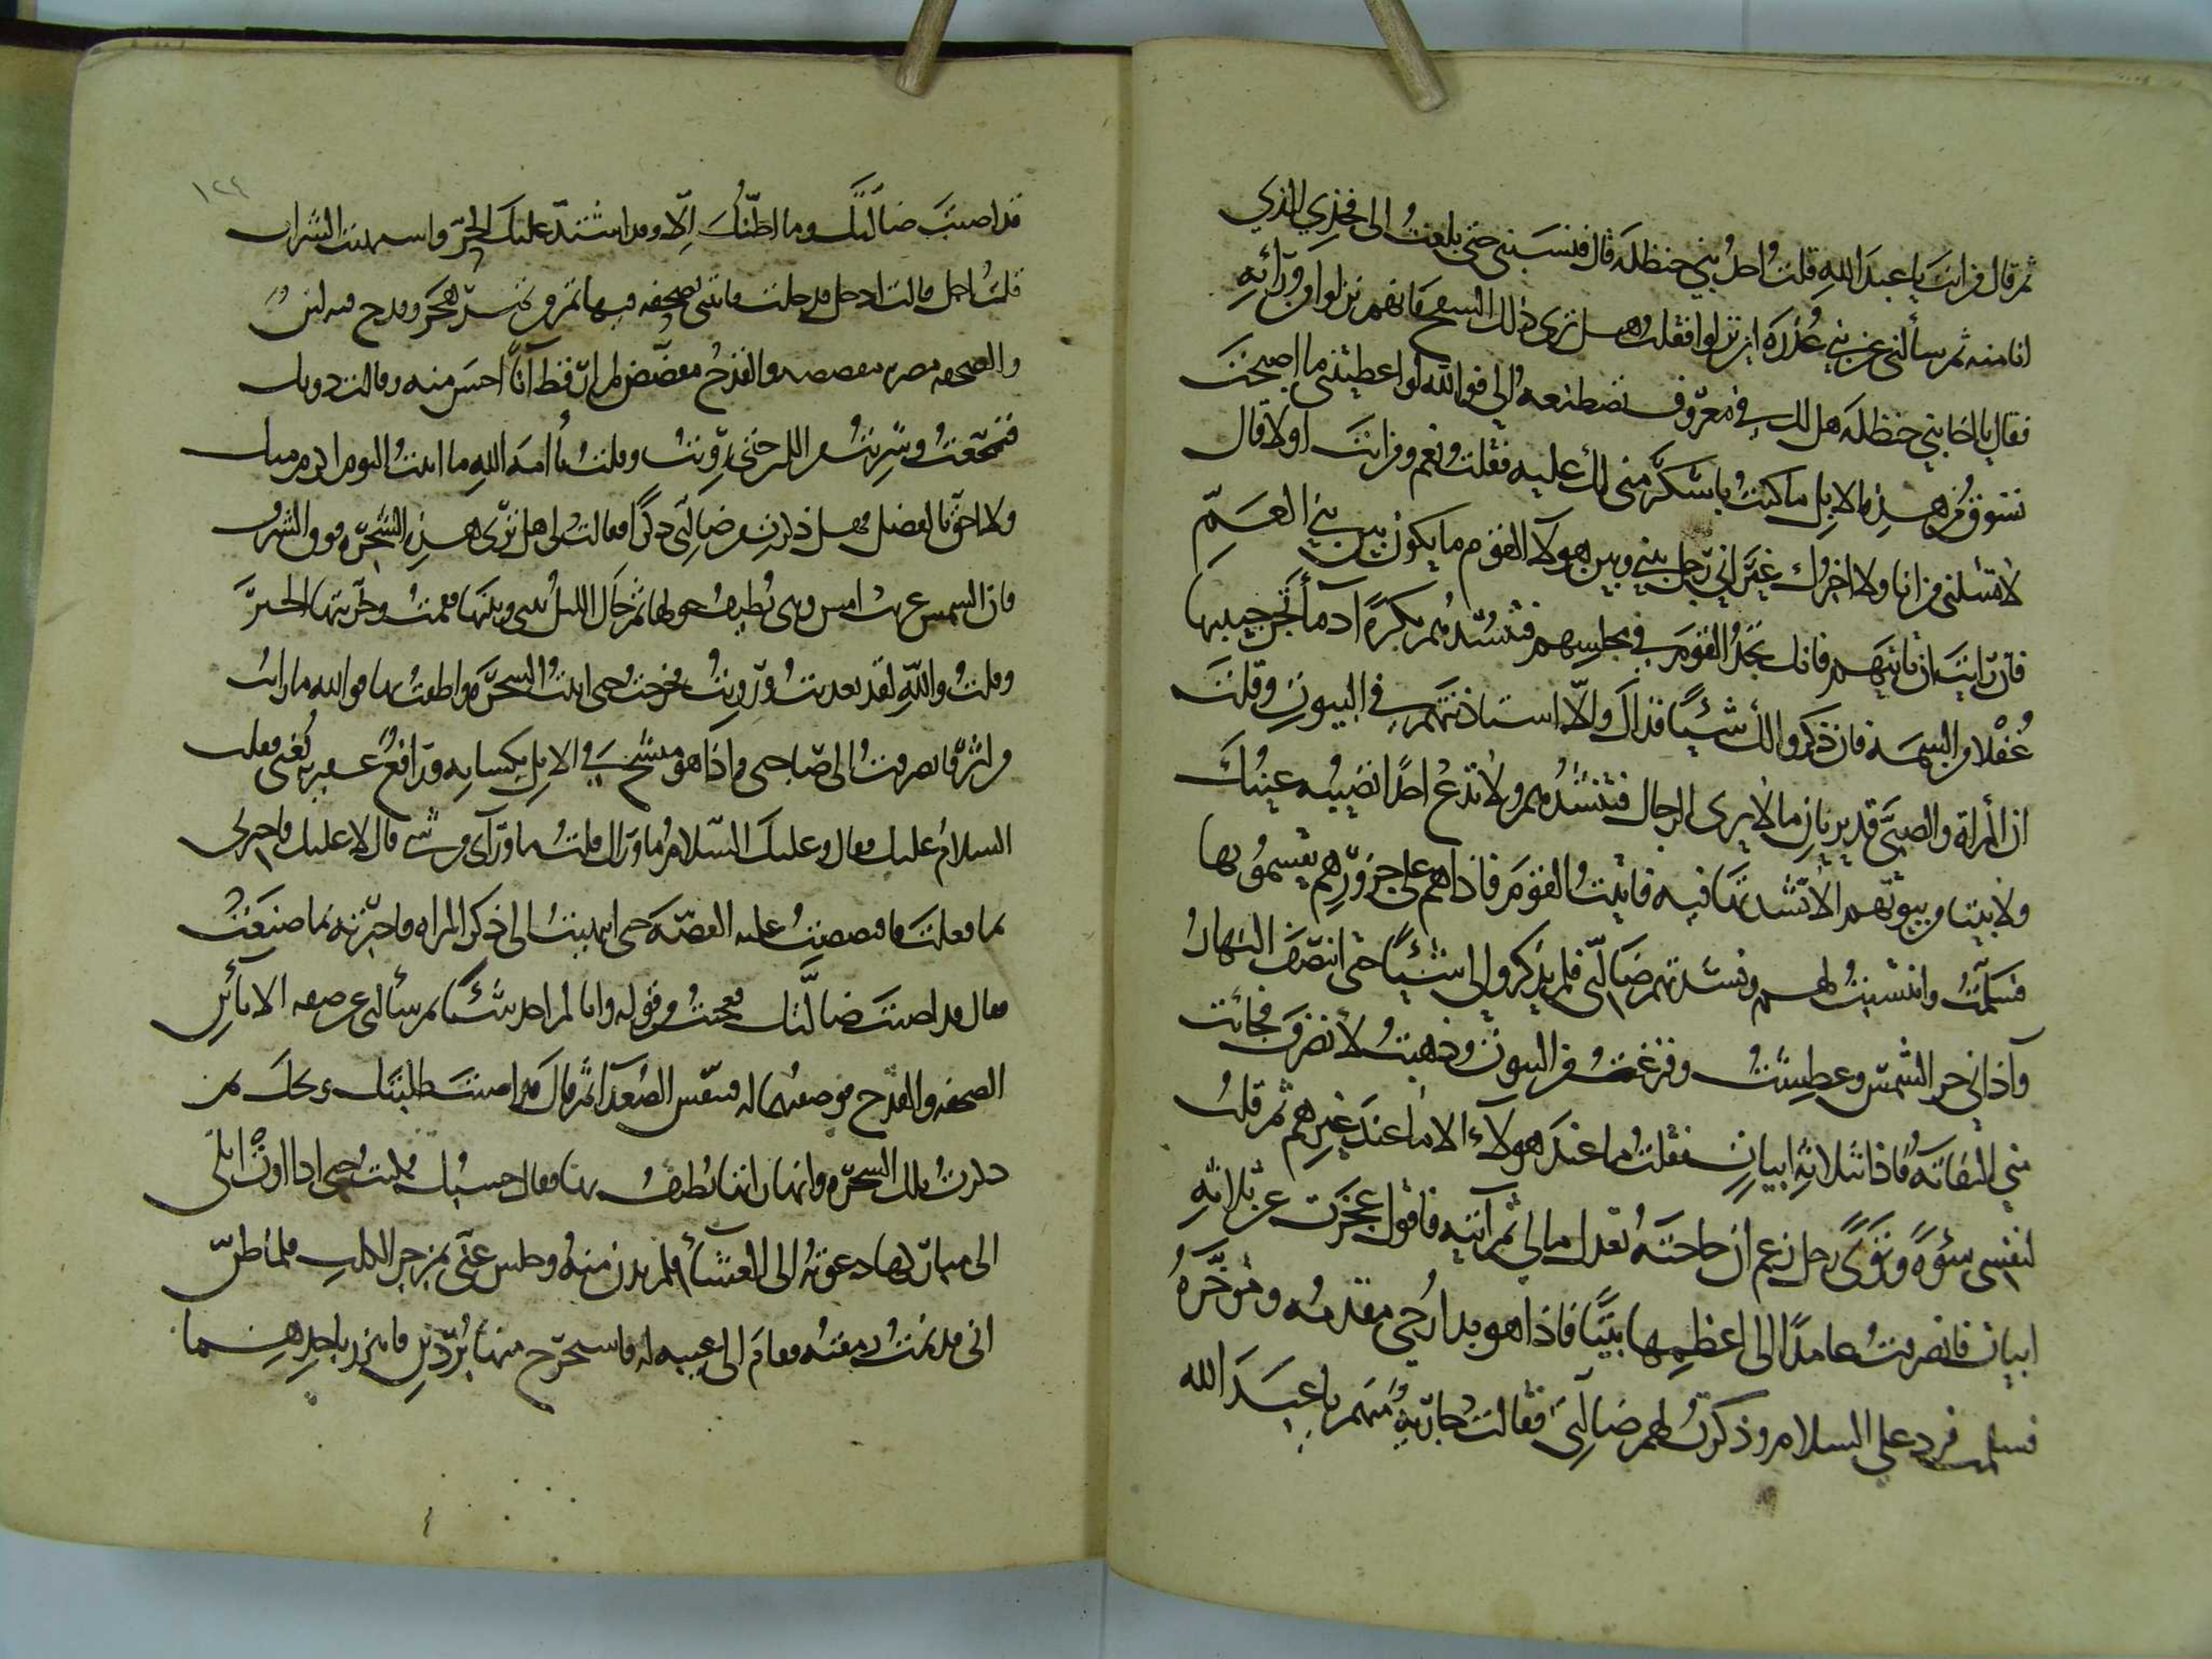 ثم قال فمن انت يا عبد الله قلت احد بني حنظلة قال فنسبني حتى بلغت الى فخذي الذي
انا منه ثم سألني عن بني عذرة اين نزلوا فقلت هل ترى ذلك السفح فانهم نزلوا من ورائه
فقال يا اخا بني حنظلة هل لك في معروف تصطنعه الي فوالله لو اعطيتني ما اصبحت
تسوق من هذه الابل ما كنت باشكر مني لك عليه فقلت نعم ومن انت اولا قال
لا تسئلني من انا ولا اخبرك غير اني رجل بيني وبين هولاء القوم ما يكون بين بني العم
فان رايت ان تاتيهم فانك تجد القوم في مجلسهم فتنشدهم بكرة ادما تجر جبيبها
غفلا من السمة فان ذكروا لك شيئا فذاك والا استاذنتهم في البيوت وقلت
ان المرأة والصبي قد يريان ما لا يرى الرجال فتنشدهم ولا تدع احدا تصيبه عينك
ولا بيتا من بيوتهم الا نشدتها فيه فاتيت القوم فاذا هم على جزورهم يقسمونها
فسلمت وانتسبت لهم ونشدتهم ضالتي فلم يذكروا لي شيئا حتى انتصف النهار
واذاني حر الشمس وعطشت وفرغت من البيوت وذهبت لانصرف فجائت
مني التفاتة فاذا بثلاثة ابيات فقلت ما عند هولاء الا ما عند غيرهم ثم قلت
لنفسي سؤة ونوكى رجل زعم ان حاجته تعدل مالي ثم آتيه فاقول عجزت عن ثلاثة
ابيات فانصرفت عامدا الى اعظمها بيتا فاذا هو قد ارخي مقدمه ومؤخره
فسلمت فرد علي السلام وذكرت لهم ضالتي فقالت جارية منهم يا عبد الله
١٢٤
قد اصبت ضالتك وما اظنك الا وقد اشتد عليك الحر واشتهيت الشراب
قلت اجل قالت ادخل فدخلت فاتتني بصحفة فيها تمر من تمر هجر وقدح فيه لبن
والصحفة مصرية مفضضة والقدح مفضض لم ار قط اناء احسن منه وقالت دونك
فتمجعت وشربت من اللبن حتى رويت وقلت يا امة الله ما اتيت اليوم اكرم منك
ولا احق بالفضل فهل ذكرت من ضالتي ذكرا فقالت لي هل ترى هذه الشجرة فوق الشرف
فان الشمس غربت امس وهي تطيف حولها ثم حال الليل بيني وبينها فقمت وجزيتها الخير
وقلت والله لقد تغديت ورويت فخرجت حتى اتيت الشجرة واطفت بها فوالله ما رايت
من اثر فانصرفت الى صاحبي واذا هو متشح في الابل بكسايه ورافع عقيرته يغني فقلت
السلام عليك فقال وعليك السلام ما وراك قلت ما وراي من شي قال لا عليك فاخبرني
بما فعلت فاقتصصت عليه القصة حتى انتهيت الى ذكر المراة واخبرته بما صنعت
فقال قد اصبت ضالتك فعجبت من قوله وانا لم اجد شيئا ثم سألني عن صفة الانائين
الصحفة والقدح فوصفتهما له فتنفس الصعدا ثم قال قد اصبت طلبتك ويحك ثم
ذكرت تلك الشجرة وانها رايتها تطيف بها فقال حسبك فلبثت حتى اذا اوت ابلي
الى مباركها دعوته الى العشا فلم يدن منه وجلس عني بمزجر الكلب فلما ظن
اني قد نمت رمقته فقام الى عيبة له فاستخرج منها بردين فاتزر باحدهما